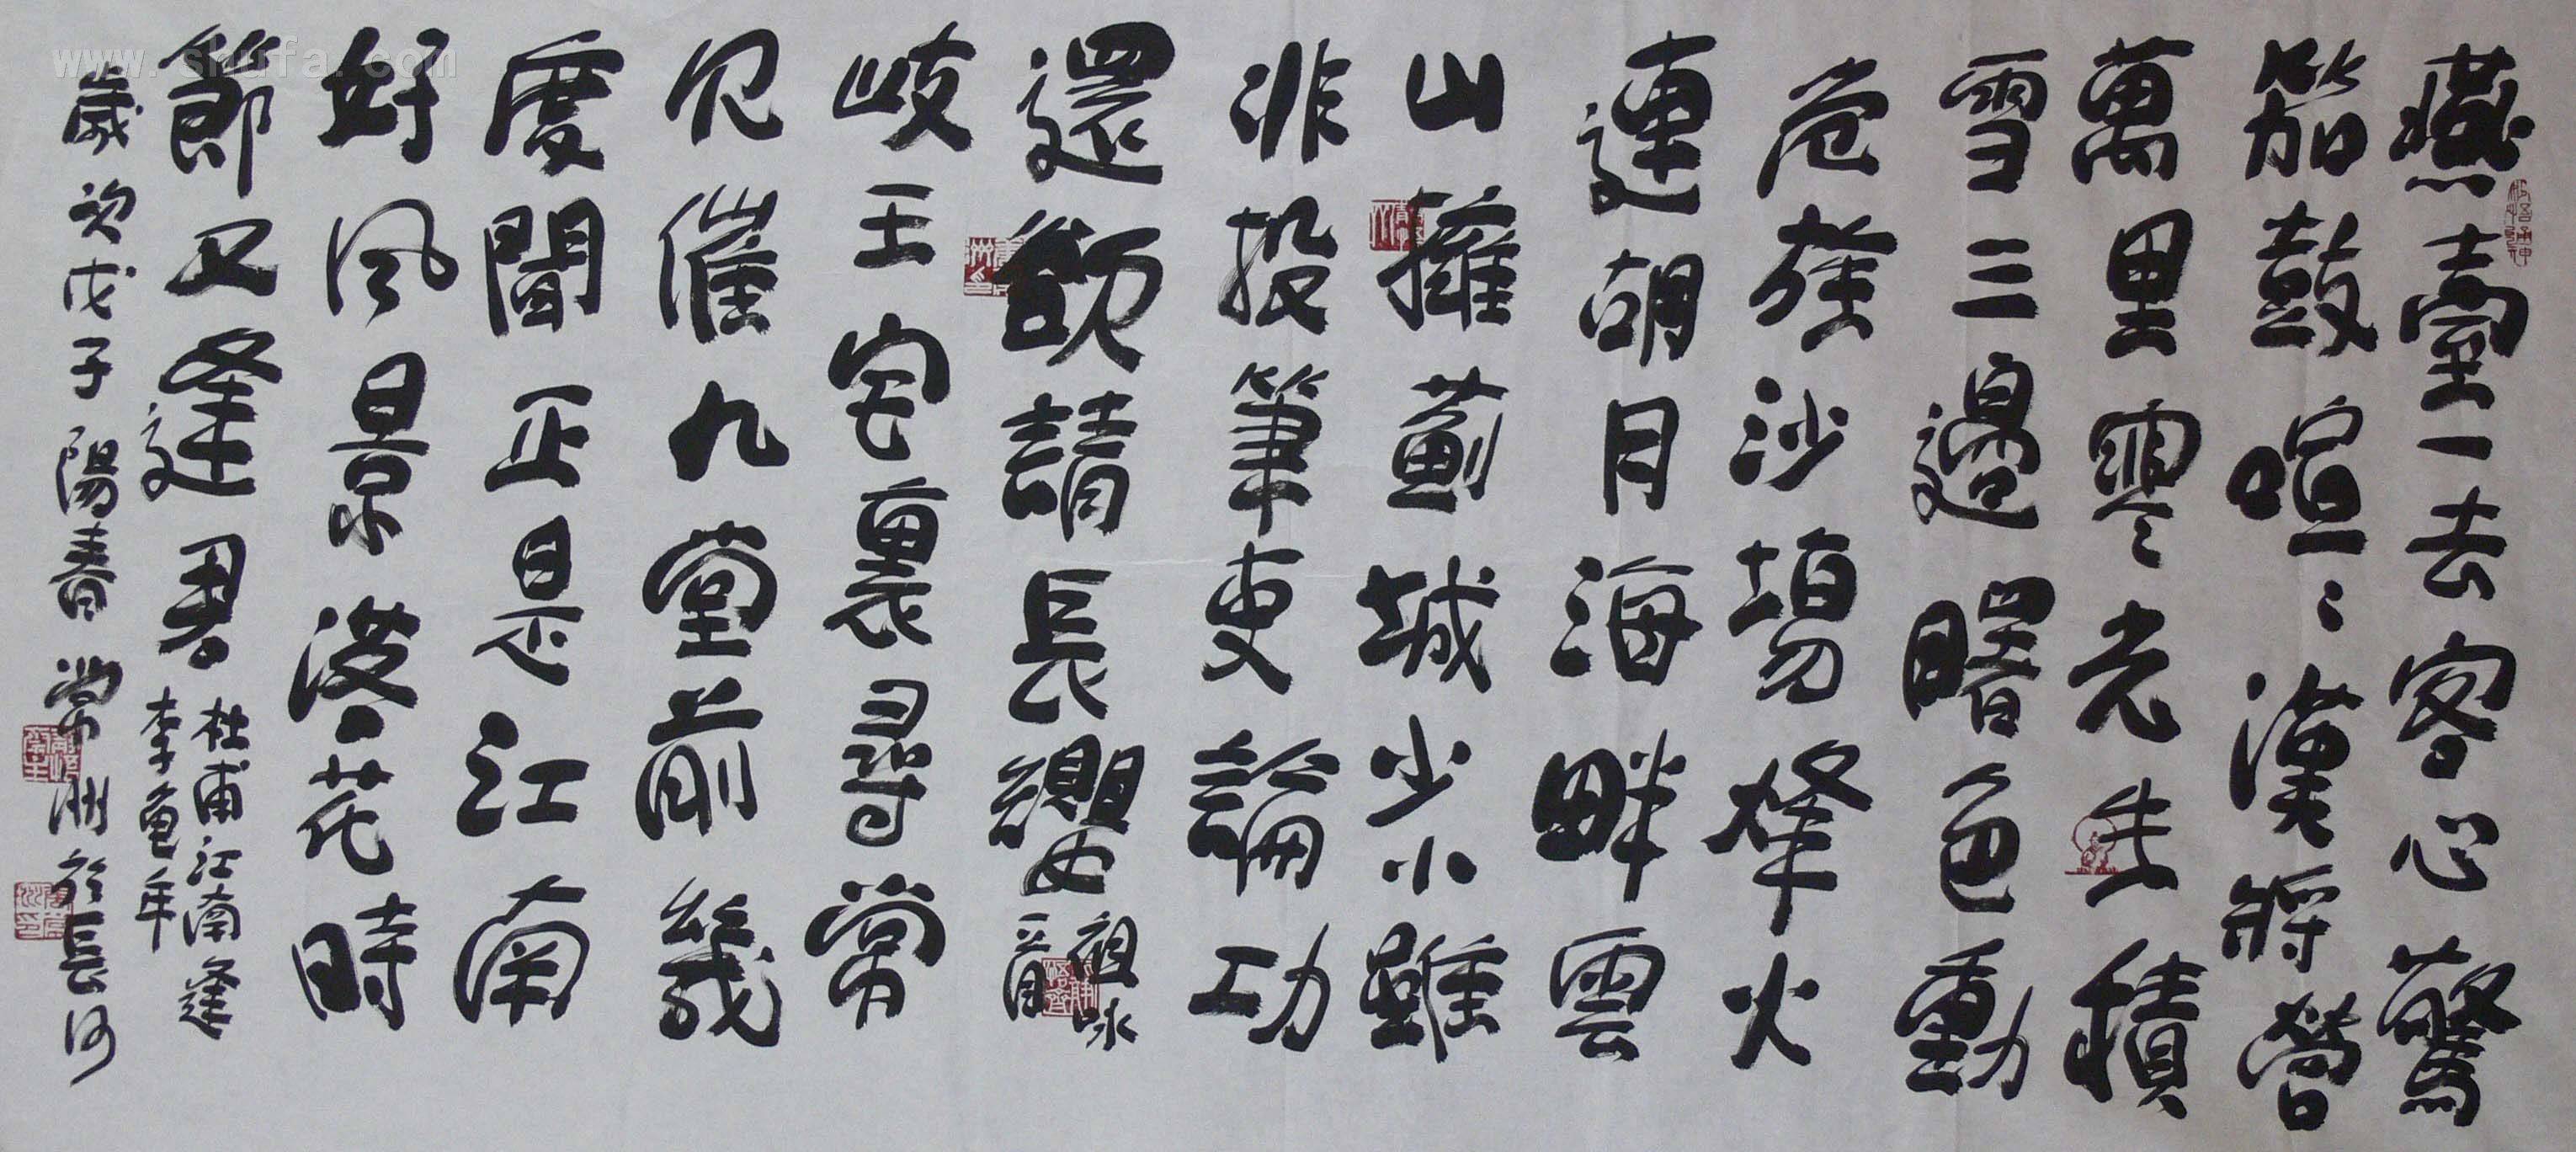 燕臺一去客心驚
笳鼓喧喧漢將營
萬里寒光生積
雪三邊曙色動
危旌沙場烽火
連胡月海畔雲
山擁薊城少小雖
非投筆吏論功
還欲請長纓
祖詠
岐王宅裏尋常
見崔九堂前幾
度聞正是江南
好風景落花時
節又逢君
杜甫江南逢
李龜年
歲次戊子陽春
常洲於長河
www.shufa.com